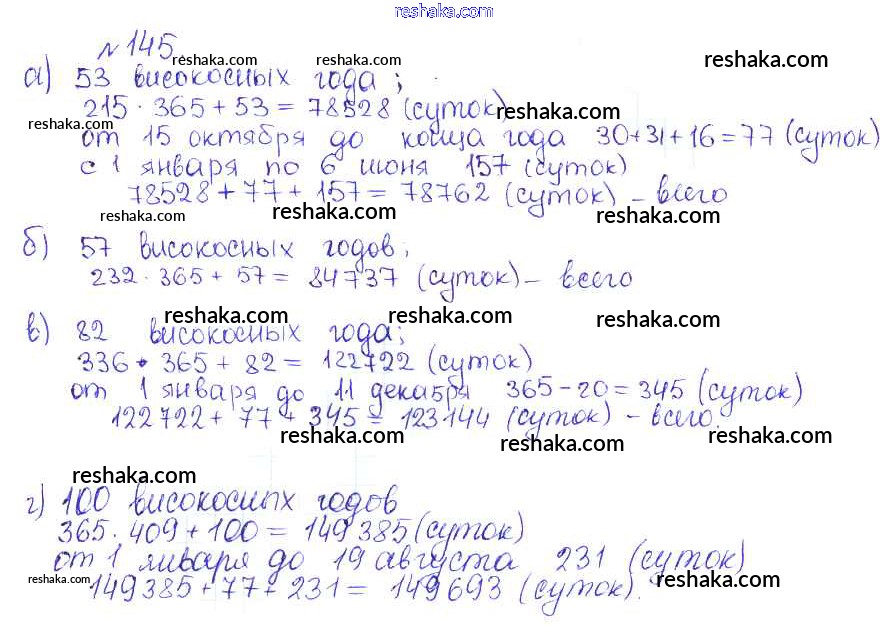 reshaka.com
№ 145. reshaka.com reshaka.com reshaka.com
а) 53 високосных года;
215 · 365 + 53 = 78528 (суток) reshaka.com
reshaka.com от 15 октября до конца года 30+31+16=77 (суток)
с 1 января по 6 июня 157 (суток)
78528 + 77 + 157 = 78762 (суток) - всего
reshaka.com reshaka.com reshaka.com
б) 57 високосных годов;
232 · 365 + 57 = 84737 (суток) - всего
reshaka.com reshaka.com reshaka.com
в) 82 високосных года;
336 · 365 + 82 = 122722 (суток)
от 1 января до 11 декабря 365 - 20 = 345 (суток)
122722 + 77 + 345 = 123144 (суток) - всего.
reshaka.com reshaka.com reshaka.com
reshaka.com
г) 100 високосных годов
365 · 409 + 100 = 149385 (суток)
от 1 января до 19 августа 231 (суток)
reshaka.com 149385 + 77 + 231 = 149693 (суток). reshaka.com